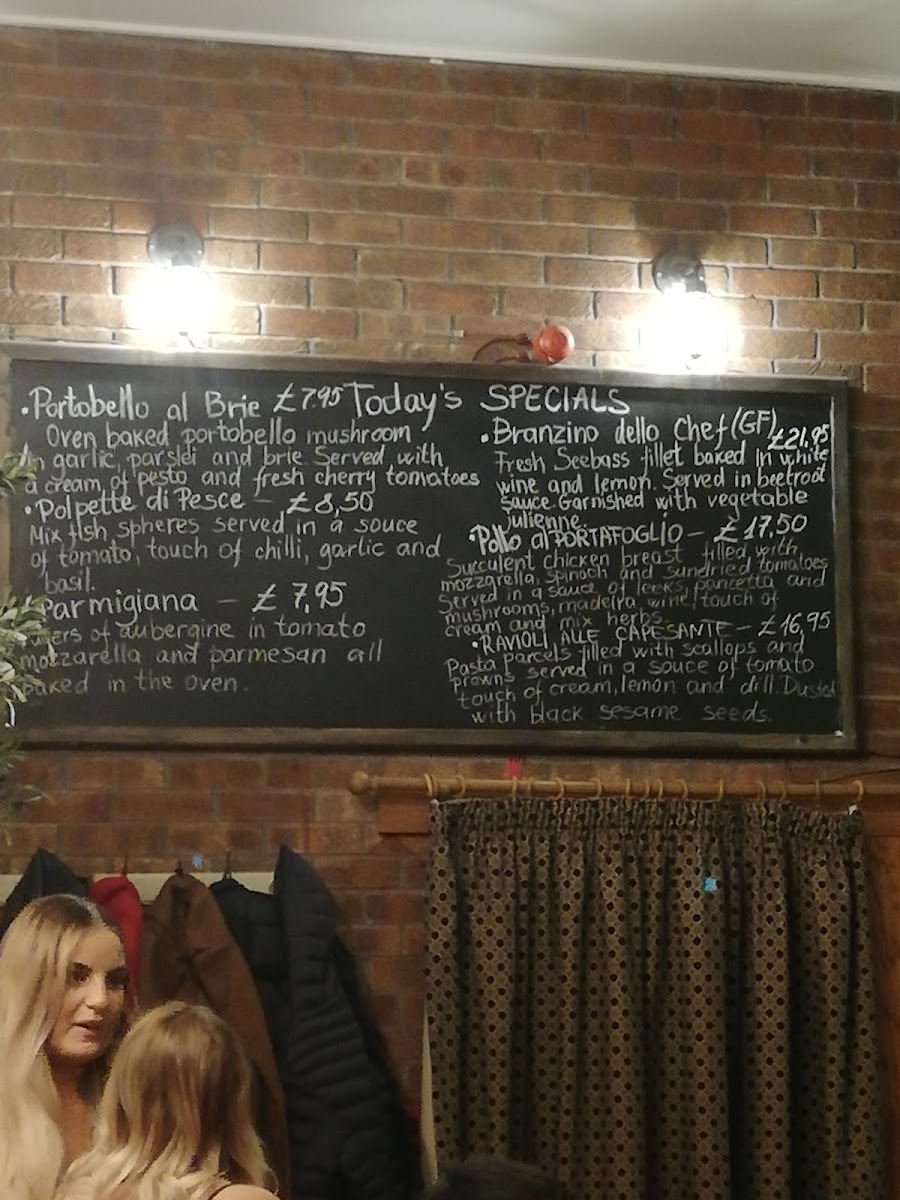 Today's SPECIALS
• Portobello al Brie £7.95
Oven baked portobello mushroom
in garlic, parslei and brie. Served with
a cream of pesto and fresh cherry tomatoes
• Polpette di Pesce - £8,50
Mix fish spheres served in a souce
of tomato, touch of chilli, garlic and
basil.
Parmigiana - £7,95
of aubergine in tomato
mozzarella and parmesan all
baked in the oven.
• Branzino dello Chef (GF) £21,95
Fresh Seebass fillet baked in white
wine and lemon. Served in beetroot
sauce. Garnished with vegetable
julienne.
• Pollo al PORTAFOGLIO - £17,50
Succulent chicken breast filled with
mozzarella, spinach and sundried tomatoes
Served in a sauce of leeks, pancetta and
mushrooms, madeira wine, touch of
cream and mix herbs.
• RAVIOLI ALLE CAPESANTE - £16,95
Pasta parcels filled with scallops and
prawns served in a souce of tomato
touch of cream, lemon and dill. Dusted
with black sesame seeds.